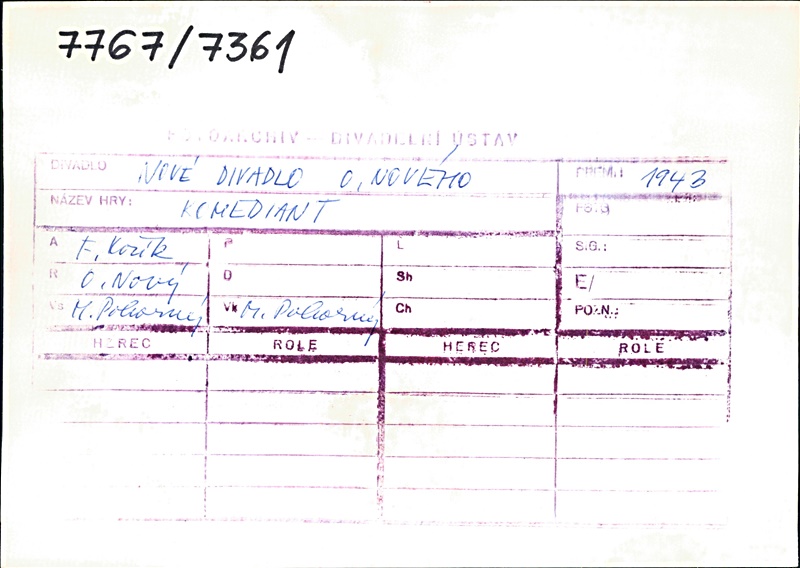 7767/7361
FOTOARCHIV – DIVADELNÍ ÚSTAV
DIVADLO NOVÉ DIVADLO O. NOVÉHO PREM.: 1943
NÁZEV HRY: KOMEDIANT
A F. Kožík P L S.G.:
R O. Nový D Sh E/
Vs M. Pokorný Vk M. Pokorný Ch POZN.:
HEREC ROLE HEREC ROLE